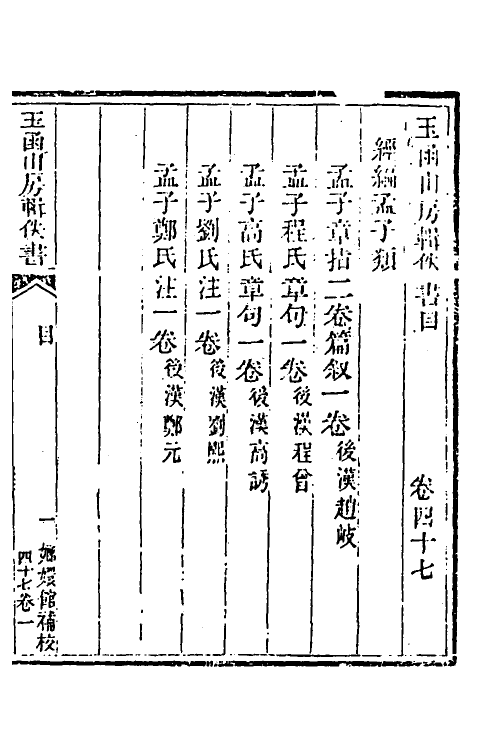 玉函山房輯佚書目 卷四十七
經編孟子類
孟子章指二卷篇敘一卷後漢趙岐
孟子程氏章句一卷後漢程曾
孟子高氏章句一卷後漢高誘
孟子劉氏注一卷後漢劉熙
孟子鄭氏注一卷後漢鄭元
玉函山房輯佚書 目 一 嫏嬛館補校
四十七卷一